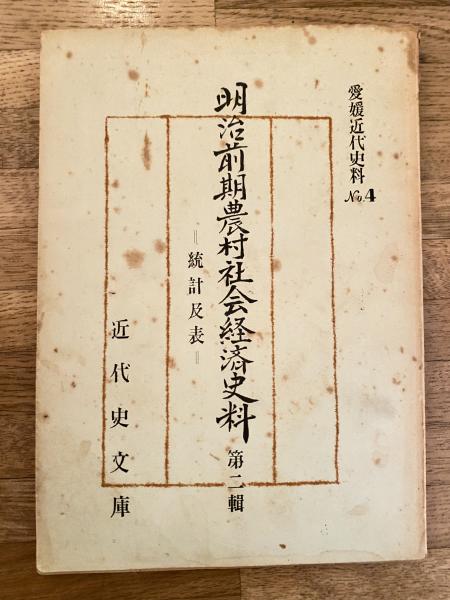 愛媛近代史料 No.4
明治前期農村社会経済史料 第二輯
＝統計及表＝
近代史文庫